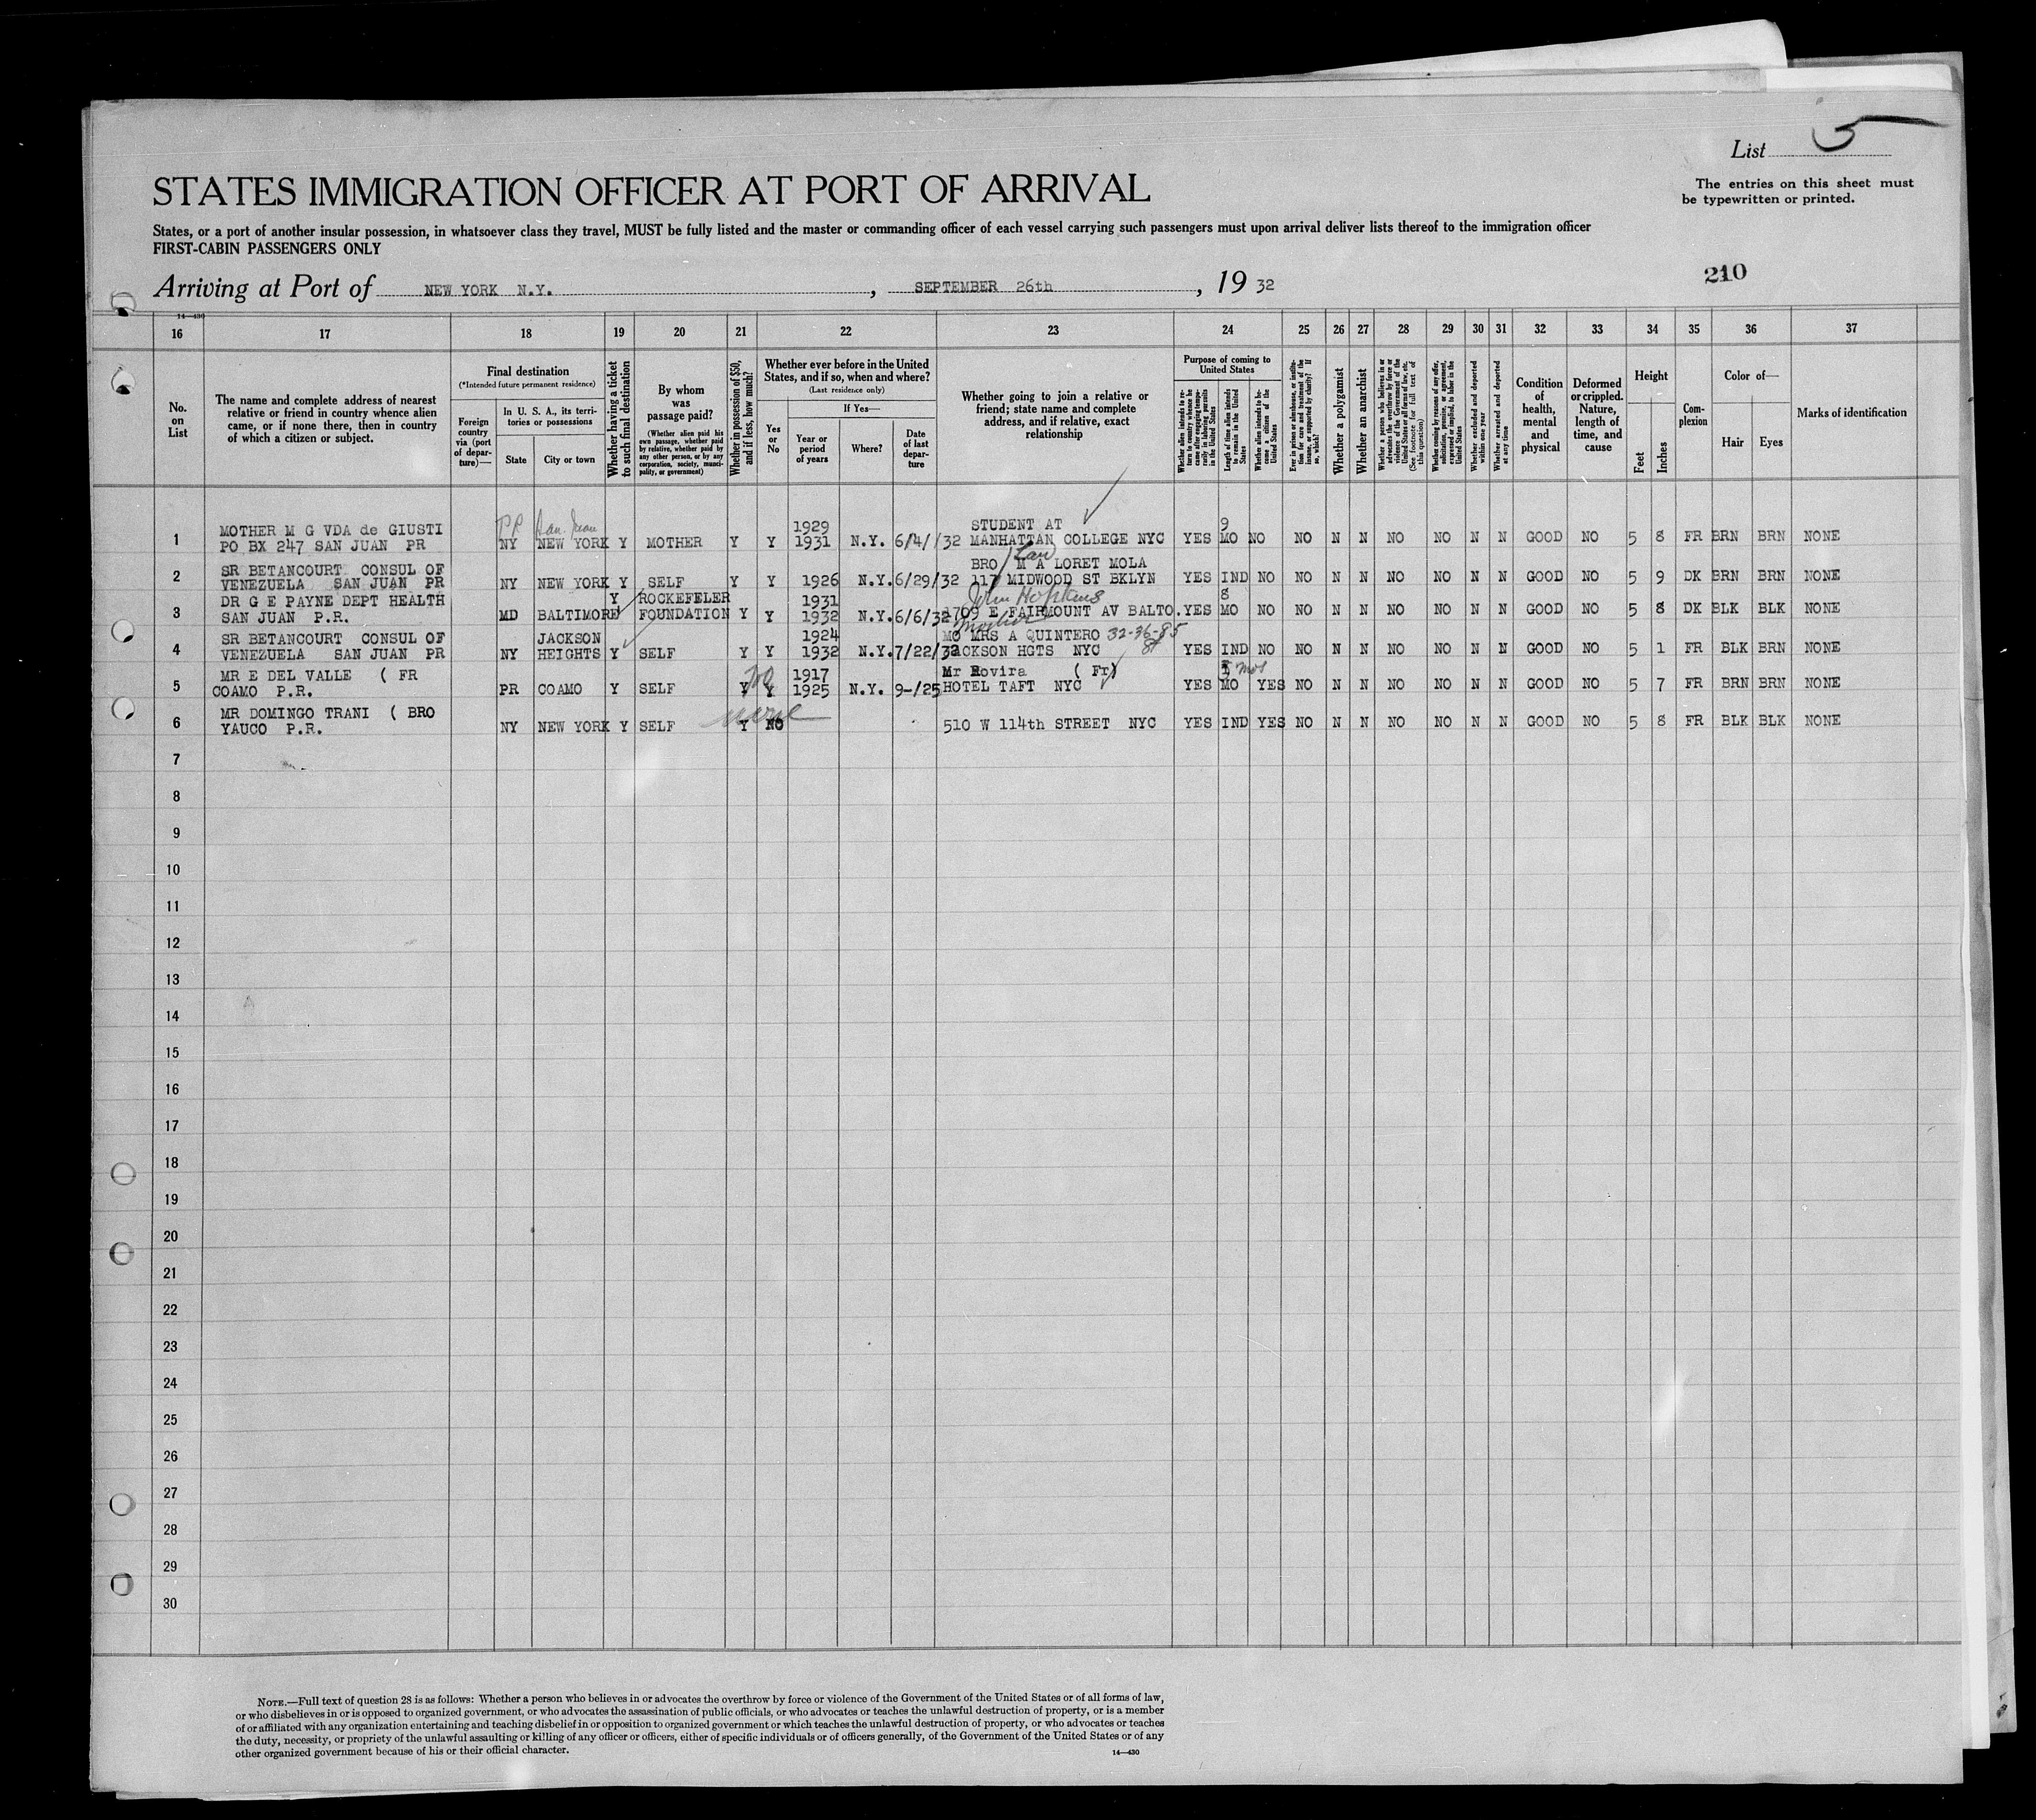 List 5
STATES IMMIGRATION OFFICER AT PORT OF ARRIVAL
The entries on this sheet must
be typewritten or printed.
States, or a port of another insular possession, in whatsoever class they travel, MUST be fully listed and the master or commanding officer of each vessel carrying such passengers must upon arrival deliver lists thereof to the immigration officer
FIRST-CABIN PASSENGERS ONLY
Arriving at Port of NEW YORK N.Y. , SEPTEMBER 26th , 19 32
210
14—430
16 17 18 19 20 21 22 23 24 25 26 27 28 29 30 31 32 33 34 35 36 37
No. on List
The name and complete address of nearest relative or friend in country whence alien came, or if none there, then in country of which a citizen or subject.
Final destination
(*Intended future permanent residence)
Foreign country via (port of departure)—
In U. S. A., its territories or possessions
State
City or town
Whether having a ticket to such final destination
By whom was passage paid?
(Whether alien paid his own passage, whether paid by relative, whether paid by any other person, or by any corporation, society, municipality, or government)
Whether in possession of $50, and if less, how much?
Whether ever before in the United States, and if so, when and where?
(Last residence only)
Yes or No
If Yes—
Year or period of years
Where?
Date of last departure
Whether going to join a relative or friend; state name and complete address, and if relative, exact relationship
Purpose of coming to United States
Whether alien intends to return to country whence he came after engaging temporarily in laboring pursuits in the United States
Length of time alien intends to remain in the United States
Whether alien intends to become a citizen of the United States
Ever in prison or almshouse, or institution for care and treatment of the insane, or supported by charity? If so, which?
Whether a polygamist
Whether an anarchist
Whether a person who believes in or advocates the overthrow by force or violence of the Government of the United States or all forms of law, etc. (See footnote for full text of this question)
Whether coming by reasons of any offer, solicitation, promise, or agreement, expressed or implied, to labor in the United States
Whether excluded and deported within one year
Whether arrested and deported at any time
Condition of health, mental and physical
Deformed or crippled. Nature, length of time, and cause
Height
Feet
Inches
Complexion
Color of—
Hair
Eyes
Marks of identification
P.R. San Juan 1929 STUDENT AT 9
1 MOTHER M G VDA de GIUSTI
PO BX 247 SAN JUAN PR NY NEW YORK Y MOTHER Y Y 1931 N.Y. 6/4/32 MANHATTAN COLLEGE NYC YES MO NO NO N N NO NO N N GOOD NO 5 8 FR BRN BRN NONE
BRO / Law M A LORET MOLA
2 SR BETANCOURT CONSUL OF
VENEZUELA SAN JUAN PR NY NEW YORK Y SELF Y Y 1926 N.Y. 6/29/32 117 MIDWOOD ST BKLYN YES IND NO NO N N NO NO N N GOOD NO 5 9 DK BRN BRN NONE
Y ROCKEFELER 1931 John Hopkins 8
3 DR G E PAYNE DEPT HEALTH
SAN JUAN P.R. MD BALTIMORE FOUNDATION Y Y 1932 N.Y. 6/6/32 1709 E FAIRMOUNT AV BALTO. YES MO NO NO N N NO NO N N GOOD NO 5 8 DK BLK BLK NONE
Mother
JACKSON 1924 MO MRS A QUINTERO 32-36-85
4 SR BETANCOURT CONSUL OF
VENEZUELA SAN JUAN PR NY HEIGHTS Y SELF Y Y 1932 N.Y. 7/22/32 JACKSON HGTS NYC St YES IND NO NO N N NO NO N N GOOD NO 5 1 FR BLK BRN NONE
1917 Mr Rovira ( Fr) mos
5 MR E DEL VALLE ( FR
COAMO P.R. PR COAMO Y SELF Y Y 1925 N.Y. 9-/25 HOTEL TAFT NYC YES MO YES NO N N NO NO N N GOOD NO 5 7 FR BRN BRN NONE
6 MR DOMINGO TRANI ( BRO
YAUCO P.R. NY NEW YORK Y SELF Y NO 510 W 114th STREET NYC YES IND YES NO N N NO NO N N GOOD NO 5 8 FR BLK BLK NONE
7
8
9
10
11
12
13
14
15
16
17
18
19
20
21
22
23
24
25
26
27
28
29
30
NOTE.—Full text of question 28 is as follows: Whether a person who believes in or advocates the overthrow by force or violence of the Government of the United States or of all forms of law,
or who disbelieves in or is opposed to organized government, or who advocates the assassination of public officials, or who advocates or teaches the unlawful destruction of property, or is a member
of or affiliated with any organization entertaining and teaching disbelief in or opposition to organized government or which teaches the unlawful destruction of property, or who advocates or teaches
the duty, necessity, or propriety of the unlawful assaulting or killing of any officer or officers, either of specific individuals or of officers generally, of the Government of the United States or of any
other organized government because of his or their official character.
14—430